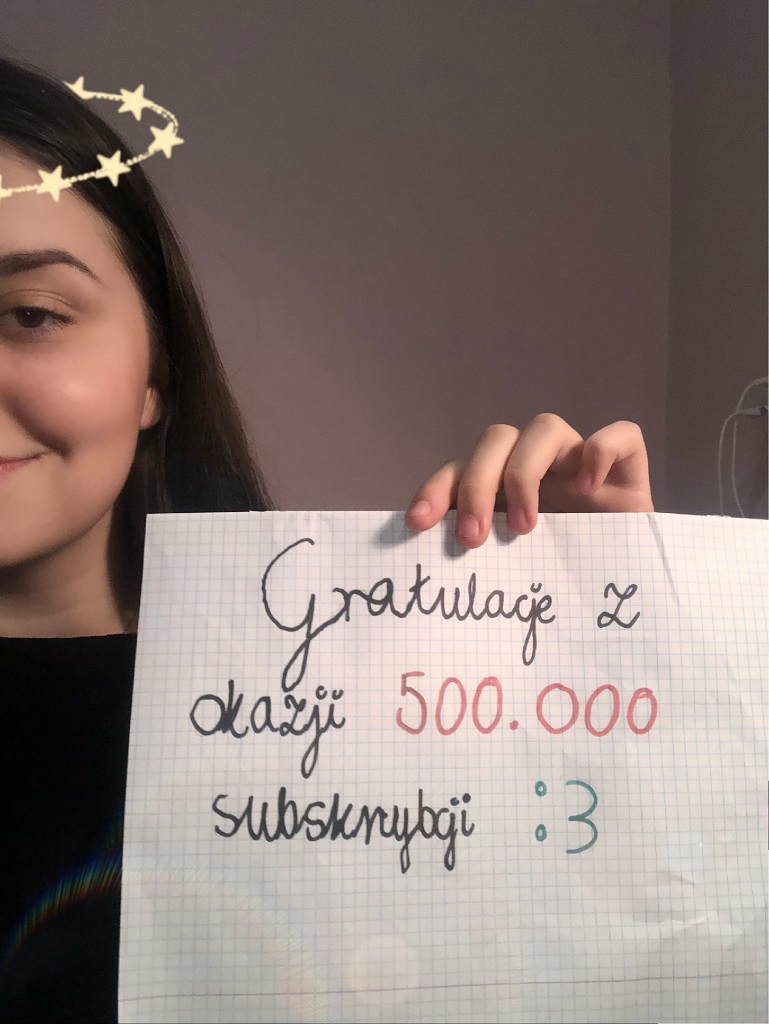 Gratulacje z
okazji 500.000
subskrybcji :3